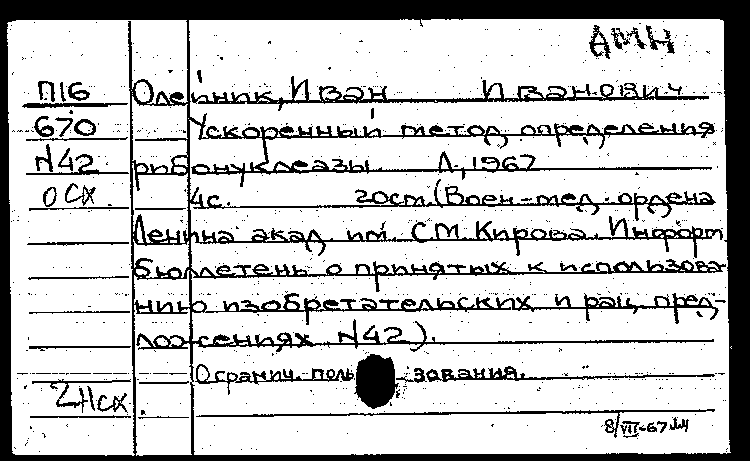 АМН
П16 Олейник, Иван Иванович
670 Ускоренный метод определения
N42 рибонуклеазы. Л, 1967
ОСХ 4с. 20см. (Воен-мед. ордена
Ленина акад им. С.М. Кирова. Информ
бюллетень о принятых к использова-
нию изобретательских и рац. пред-
ложениях N42).
Огранич. пользования.
2Нсх
8/VII-67